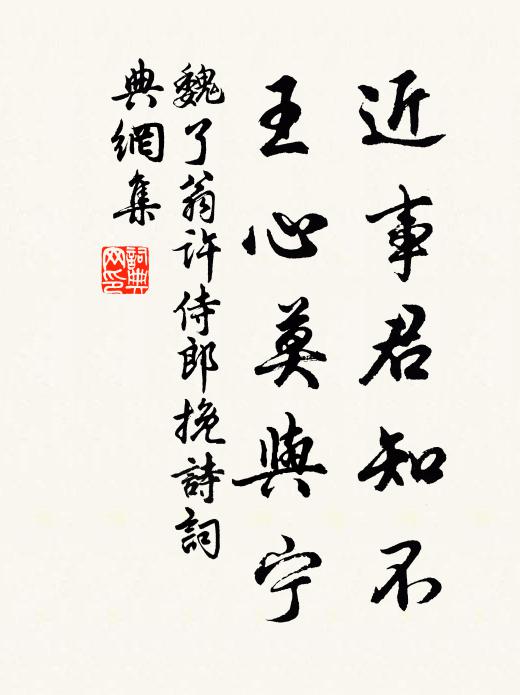 近事君知不
王心莫與宁
魏了翁許侍郎挽詩詞
典網集
詞典
网印